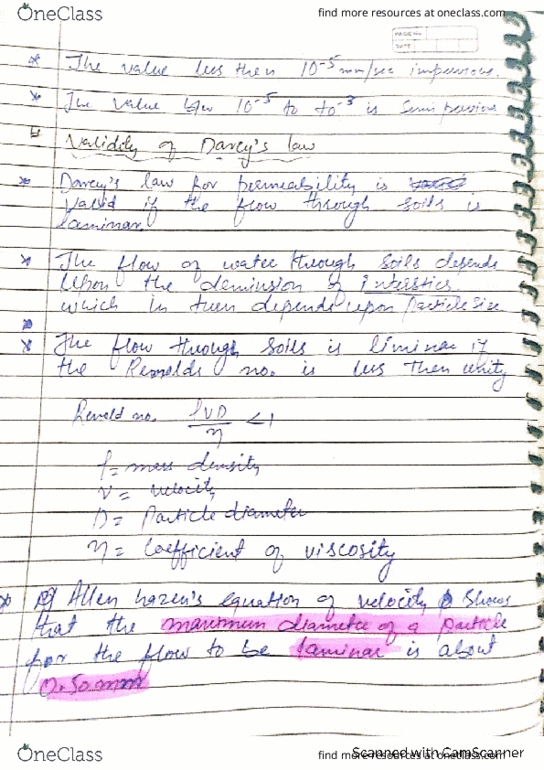 OneClass
find more resources at oneclass.com
PAGE No.
DATE
* The value less then 10⁻⁵ mm/sec impervious.
* The value b/w 10⁻⁵ to 10⁻³ is Semi pervious
Validity of Darcy's law
* Darcy's law for permeability is
valid if the flow through soils is
laminar
* The flow of water through soils depends
Upon the demension of interstics.
which in turn depends upon Particle size
* The flow through soils is liminar if
the Renolds no. is less then unity
Renold no. ρVD/η <1
ρ= mass density
v= velocity
D= Particle diameter
η= Coefficient of viscosity
Allen hazen's equation of velocity Shows
that the maximum diameter of a particle
for the flow to be laminar is about
0.50mm
OneClass
find more resources at oneclass.com
Scanned with CamScanner